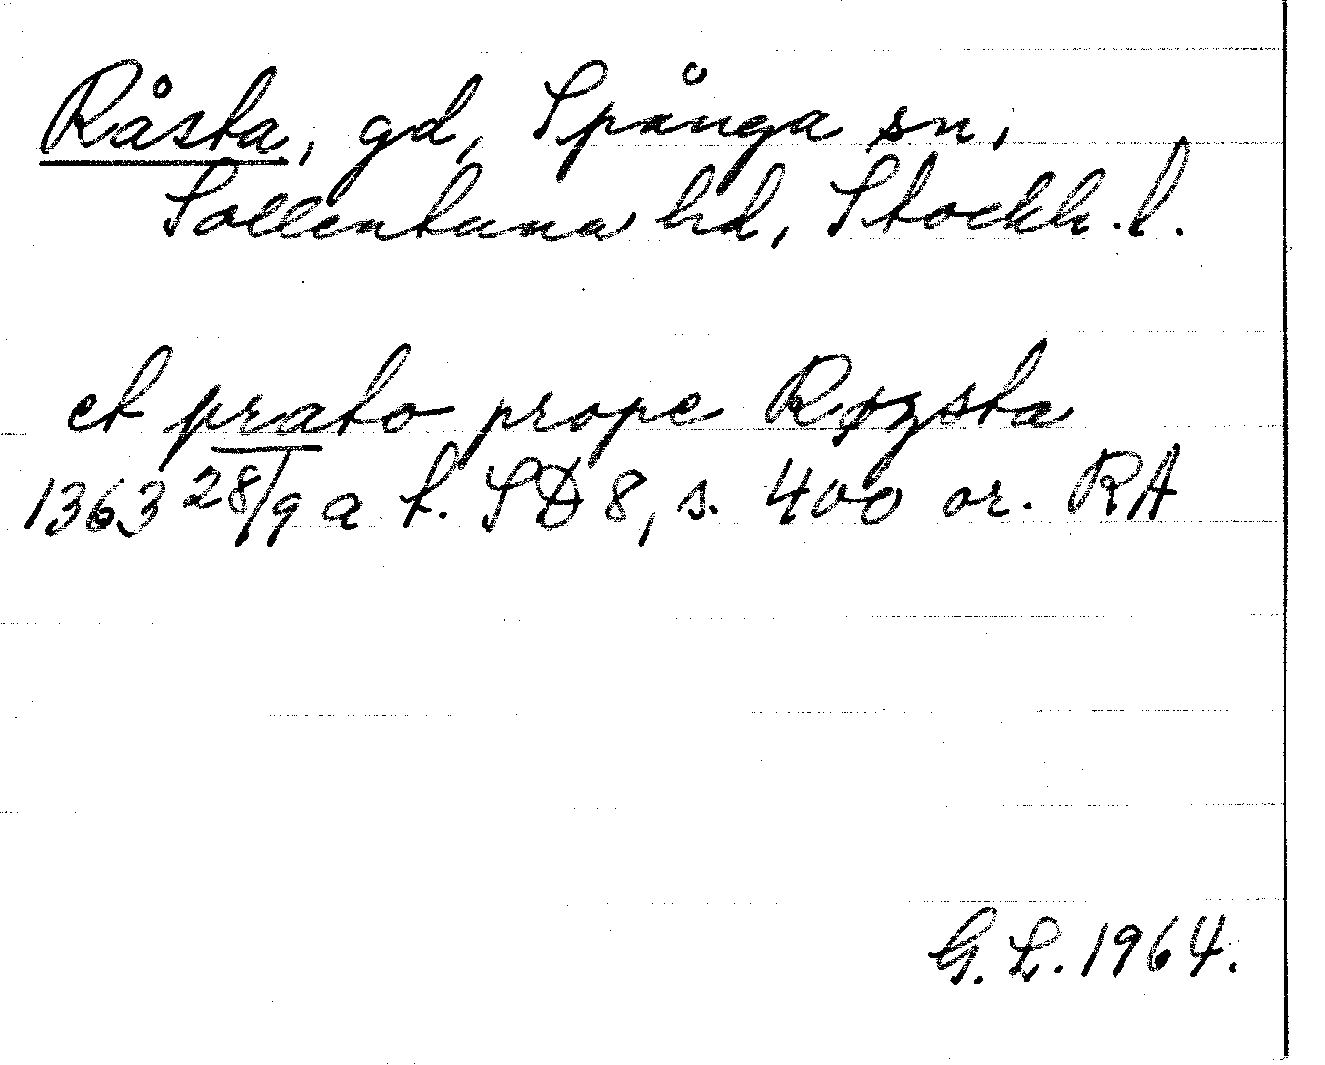 Råsta, gd, Spånga sn,
Sollentuna hd, Stockh. l.
et prato prope Røzsta
1363 28/9 a t. SD 8, s. 400 or. RA
G. L. 1964.